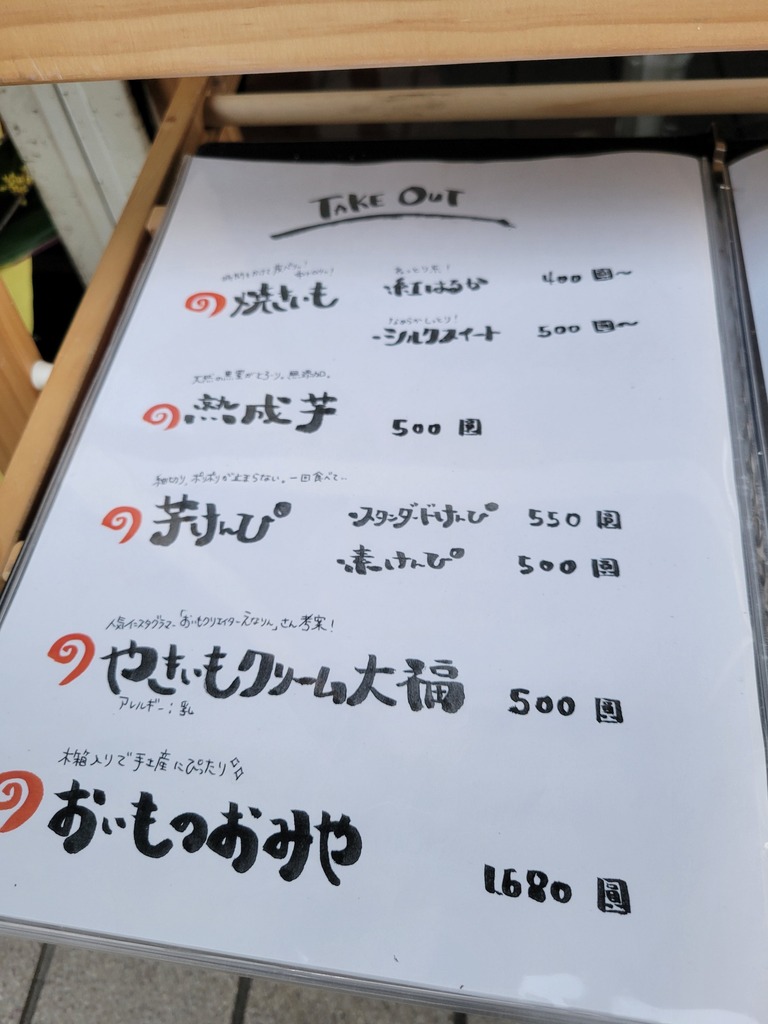 TAKE OUT
焼きいも
ねっとり系!
・紅はるか 400圓〜
なめらかしっとり!
・シルクスイート 500圓〜
天然の黒蜜がとろ〜り。無添加。
熟成芋 500圓
細切り、ポリポリが止まらない。一回食べて..
芋けんぴ
・スタンダードけんぴ 550圓
・素けんぴ 500圓
人気インスタグラマー「おいもクリエイターえなりん」さん考案!
やきいもクリーム大福 500圓
アレルギー:乳
木箱入りで手土産にぴったり
おいものおみや
1.680圓